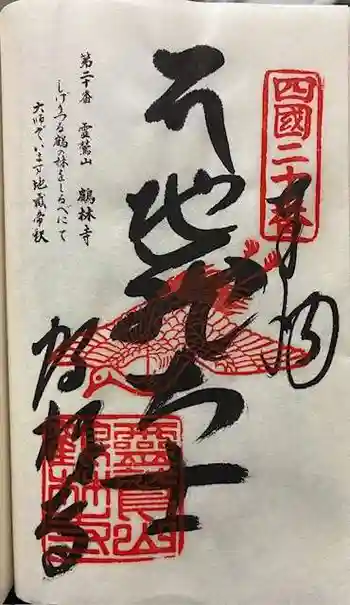 四國二十番
奉納
地蔵大士
鶴林寺
靈鷲山
鶴林寺
第二十番　靈鷲山　鶴林寺
しげりつる鶴の林をしるべにて
大師ぞいます地蔵帝釈